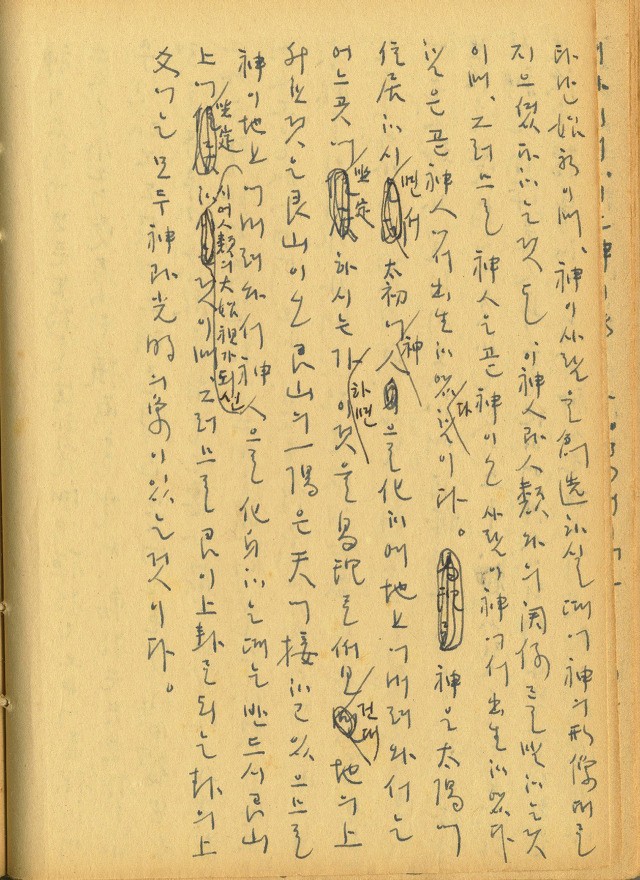 다난 始初이며, 神이 사람을 創造하실 때에 神의 形像대로
지으셨다 하는 것도 이 神人과 人類와의 関係를 말하는 것
이며, 그러므로 神人은 곧 神이오 사람이 神에서 出生하였다
함은 곧 神人에서 出生하였다 함이다。 神은 太陽에
住居하시면서 太初에 神人으로 化하여 地上에 내려와서는
어느곳에 坐定하시는가 하면 이것을 易理로써 보건대 地의 上
升한 것은 艮山이오 艮山의 一陽은 天에 接하고 있으므로
神이 地上에 내려와서 神人으로 化身하는 때는 반드시 艮山
上에 坐定하시어 人類의 大始祖가 되신 것이며, 그러므로 艮이 上卦로 되는 卦의 上
爻에는 모두 神과 光明의 象이 있는 것이다。